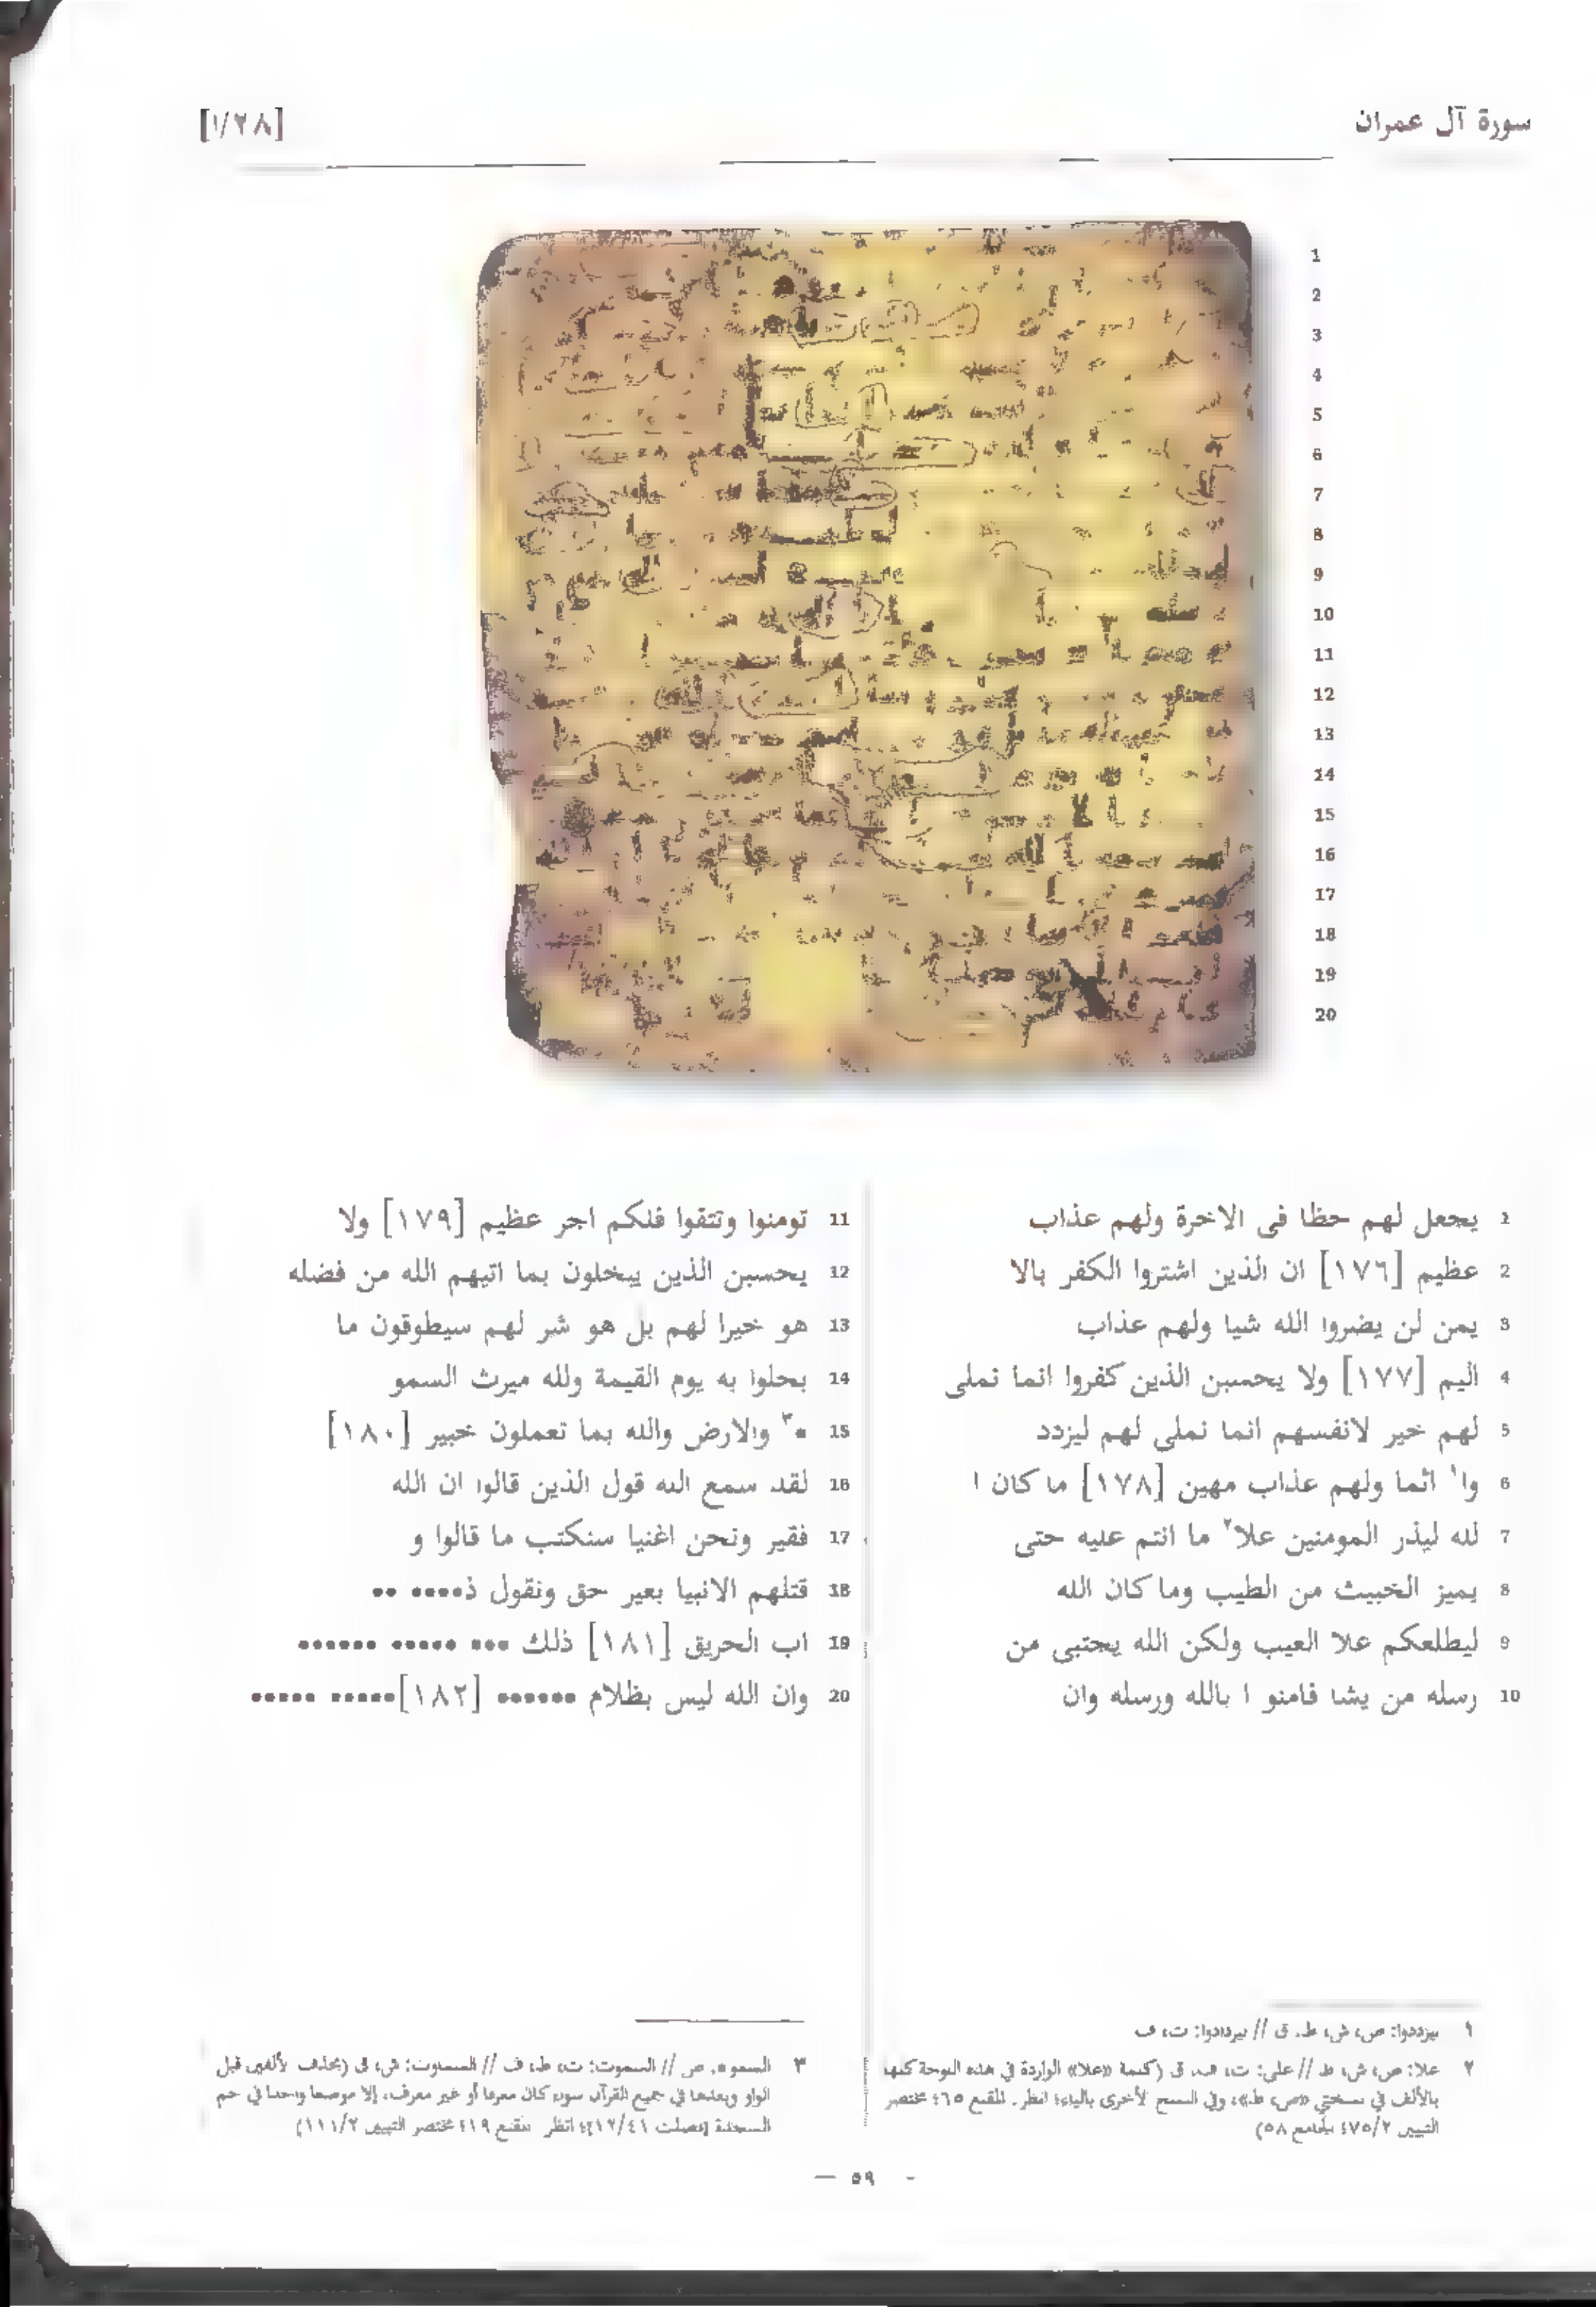 سورة آل عمران
[١/٢٨]
1
2
3
4
5
6
7
8
9
10
11
12
13
14
15
16
17
18
19
20
1 يجعل لهم حظا فى الاخرة ولهم عذاب
2 عظيم [١٧٦] ان الذين اشتروا الكفر بالا
3 يمن لن يضروا الله شيا ولهم عذاب
4 اليم [١٧٧] ولا يحسبن الذين كفروا انما نملى
5 لهم خير لانفسهم انما نملى لهم ليزدد
6 وا١ اثما ولهم عذاب مهين [١٧٨] ما كان ا
7 لله ليذر المومنين علا٢ ما انتم عليه حتى
8 يميز الخبيث من الطيب وما كان الله
9 ليطلعكم علا العيب ولكن الله يجتبى من
10 رسله من يشا فامنو ا بالله ورسله وان
11 تومنوا وتتقوا فلكم اجر عظيم [١٧٩] ولا
12 يحسبن الذين يبخلون بما اتيهم الله من فضله
13 هو خيرا لهم بل هو شر لهم سيطوقون ما
14 بحلوا به يوم القيمة ولله ميرث السمو
15 •٣ والارض والله بما تعملون خبير [١٨٠]
16 لقد سمع الله قول الذين قالوا ان الله
17 فقير ونحن اغنيا سنكتب ما قالوا و
18 قتلهم الانبيا بعير حق ونقول ذ•••• ••
19 اب الحريق [١٨١] ذلك ••• ••••• ••••••
20 وان الله ليس بظلام •••••• [١٨٢]••••• •••••
١ ليزددوا: ص، ش، ط، ق // ليزدادوا: ت، ف
٢ علا: ص، ش، ط // على: ت، ف، ق (كلمة «علا» الواردة في هذه اللوحة كلها
بالألف في نسختي «ص، ط»، وفي النسخ الأخرى بالياء؛ انظر. المقنع ٦٥؛ مختصر
التبيين ٧٥/٢؛ الجامع ٥٨)
٣ السموت، ص // السموت: ت، ط، ف // السماوت: ش، ق (بحذف الألفين قبل
الواو وبعدها في جميع القرآن سواء كان معرفا أو غير معرف، إلا موضعا واحدا في حم
السجدة [فصلت ١٢/٤١]؛ انظر المقنع ١٩؛ مختصر التبيين ١١١/٢)
— ٥٩ -